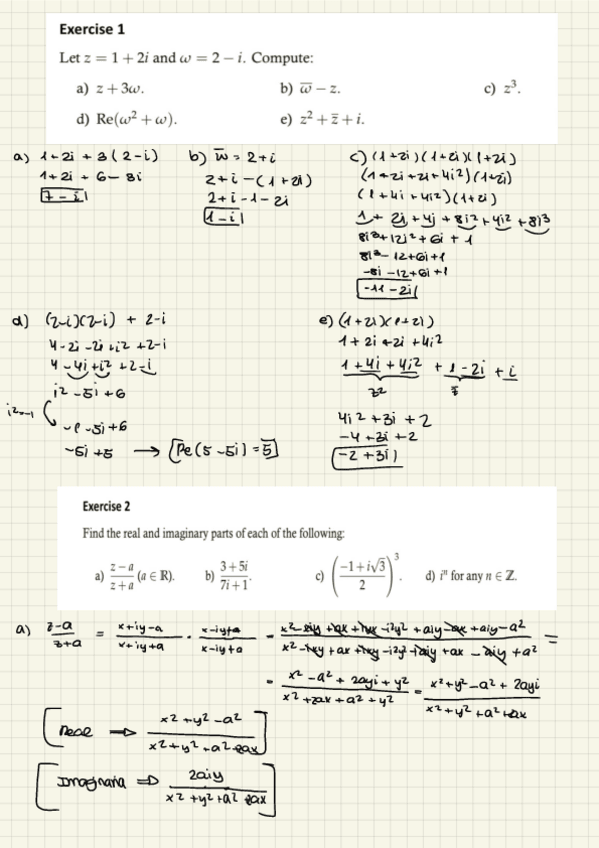 Exercise 1
Let z = 1 + 2i and ω = 2 − i. Compute:
a) z + 3ω.  b) ω̅ − z.  c) z³.
d) Re(ω² + ω).  e) z² + z̅ + i.
a) 1+2i + 3(2-i)
1+2i + 6 - 3i
7 - i
b) ω̅ = 2+i
2+i -(1+2i)
2+i -1 -2i
1-i
c) (1+2i)(1+2i)(1+2i)
(1+2i+2i+4i²)(1+2i)
(1+4i+4i²)(1+2i)
1 + 2i + 4i + 8i² + 4i² + 8i³
8i³ + 12i² + 6i + 1
8i³ - 12 + 6i + 1
-8i -12 + 6i + 1
-11 - 2i
d) (2-i)(2-i) + 2-i
4 - 2i - 2i + i² + 2 - i
4 - 4i + i² + 2 - i
i² - 5i + 6
i²=-1
-1 - 5i + 6
-5i + 5 → Re(5-5i) = 5
e) (1+2i)(1+2i)
1 + 2i + 2i + 4i²
1+4i+4i² + 1-2i + i
z² z̅
4i² + 3i + 2
-4 + 3i + 2
-2 + 3i
Exercise 2
Find the real and imaginary parts of each of the following:
a) (z − a)/(z + a) (a ∈ ℝ).  b) (3 + 5i)/(7i + 1).  c) ((−1 + i√3)/2)³.  d) iⁿ for any n ∈ ℤ.
a) (z-a)/(z+a) = (x+iy-a)/(x+iy+a) · (x-iy+a)/(x-iy+a) = (x² - xiy + ax + ixy - i²y² + aiy - ax + aiy - a²)/(x² - ixy + ax + ixy - i²y² + iay + ax - aiy + a²) =
= (x² - a² + 2ayi + y²)/(x² + 2ax + a² + y²) = (x² + y² - a² + 2ayi)/(x² + y² + a² + 2ax)
Reale ⇒ (x² + y² - a²)/(x² + y² + a² + 2ax)
Imaginaria ⇒ 2aiy/(x² + y² + a² + 2ax)